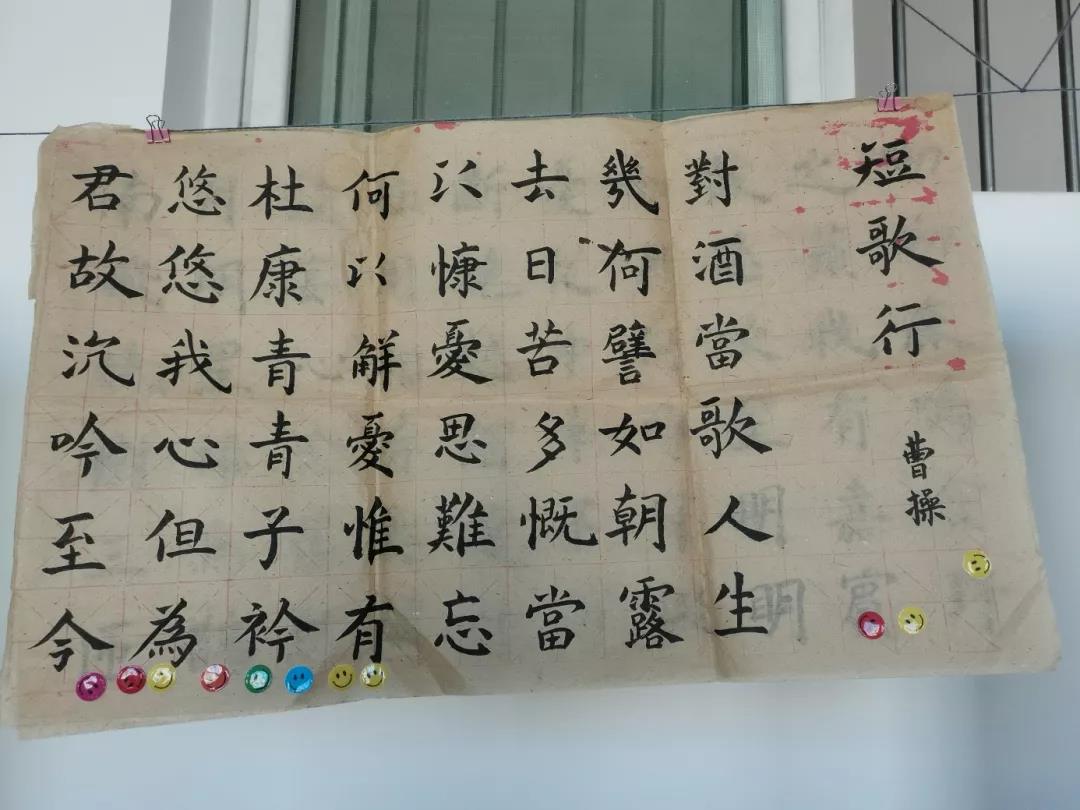 短歌行
曹操
對酒當歌人生
幾何譬如朝露
去日苦多慨當
以慷憂思難忘
何以解憂惟有
杜康青青子衿
悠悠我心但為
君故沉吟至今